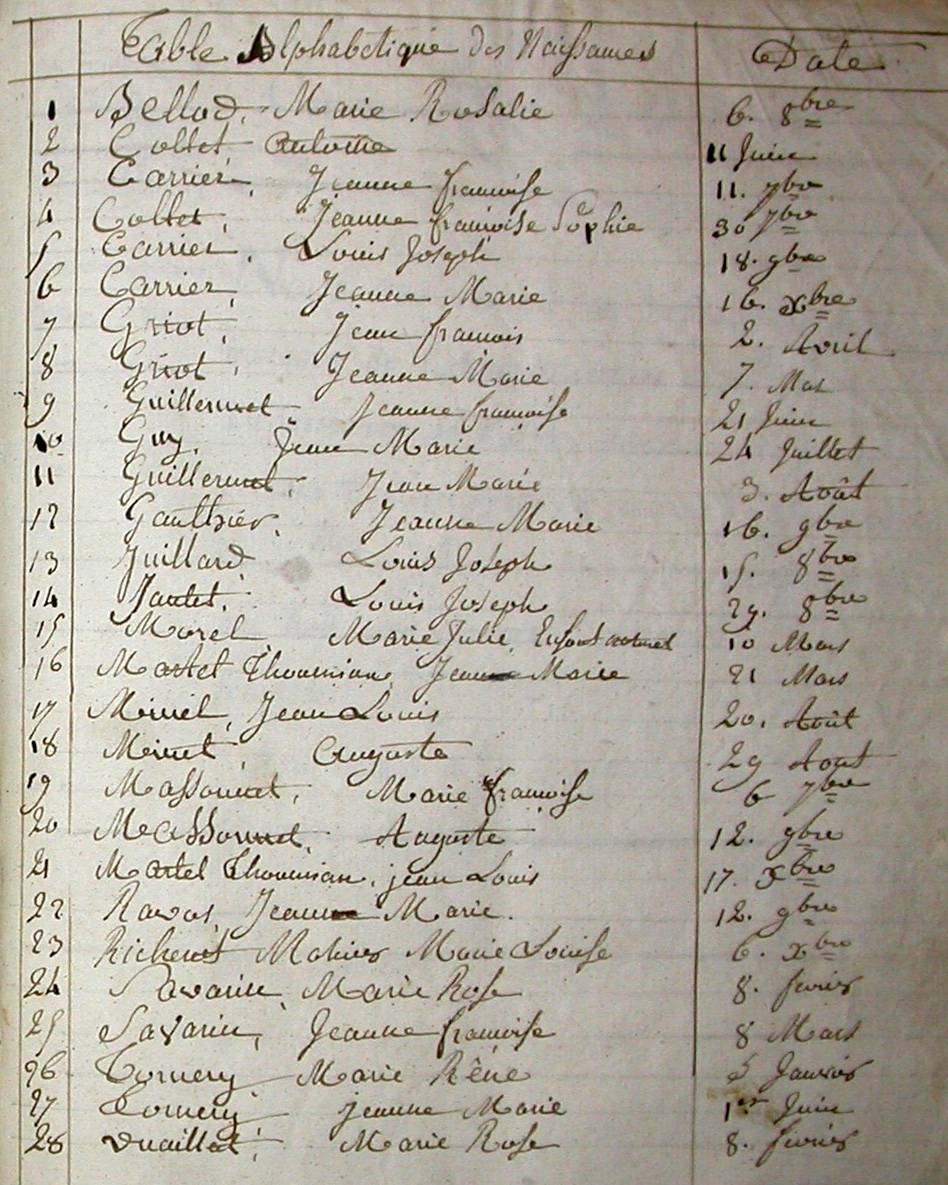 Table Alphabetique des Naissances Date
1 Bellod, Marie Rosalie 6. 8bre
2 Collet Antoine 11 Juin
3 Carrier, Jeanne françoise 11. 7bre
4 Collet, Jeanne françoise Sophie 30 7bre
5 Carrier, Louis Joseph 18. 9bre
6 Carrier, Jeanne Marie 16. xbre
7 Griot, Jean francois 2. Avril
8 Griot, Jeanne Marie 7. Mai
9 Guillermet Jeanne françoise 21 Juin
10 Guy, Jean Marie 24 Juillet
11 Guillermet, Jean Marie 3. Août
12 Gauthier, Jeanne Marie 16. 9bre
13 Juillard Louis Joseph 15. 8bre
14 Jantet, Louis Joseph 29. 8bre
15 Morel Marie Julie, Enfant naturel 10 Mars
16 Martel Thoumian, Jeanne Marie 21 Mars
17 Jean Louis 20. Août
18 Auguste 29 Aout
19 Massonnet, Marie françoise 6 7bre
20 Massonnet, Auguste 12. 9bre
21 Martel Thoumian, jean Louis 17. xbre
22 Ravos, Jeanne Marie. 12. 9bre
23 Richerot Marie Louise 6. xbre
24 Savarin, Marie Rose 8. fevrier
25 Savarin, Jeanne françoise 8 Mars
26 Tornery Marie Rêne 5 Janvier
27 Tornery jeanne Marie 1er Juin
28 Vuaillat, Marie Rose 8. fevrier